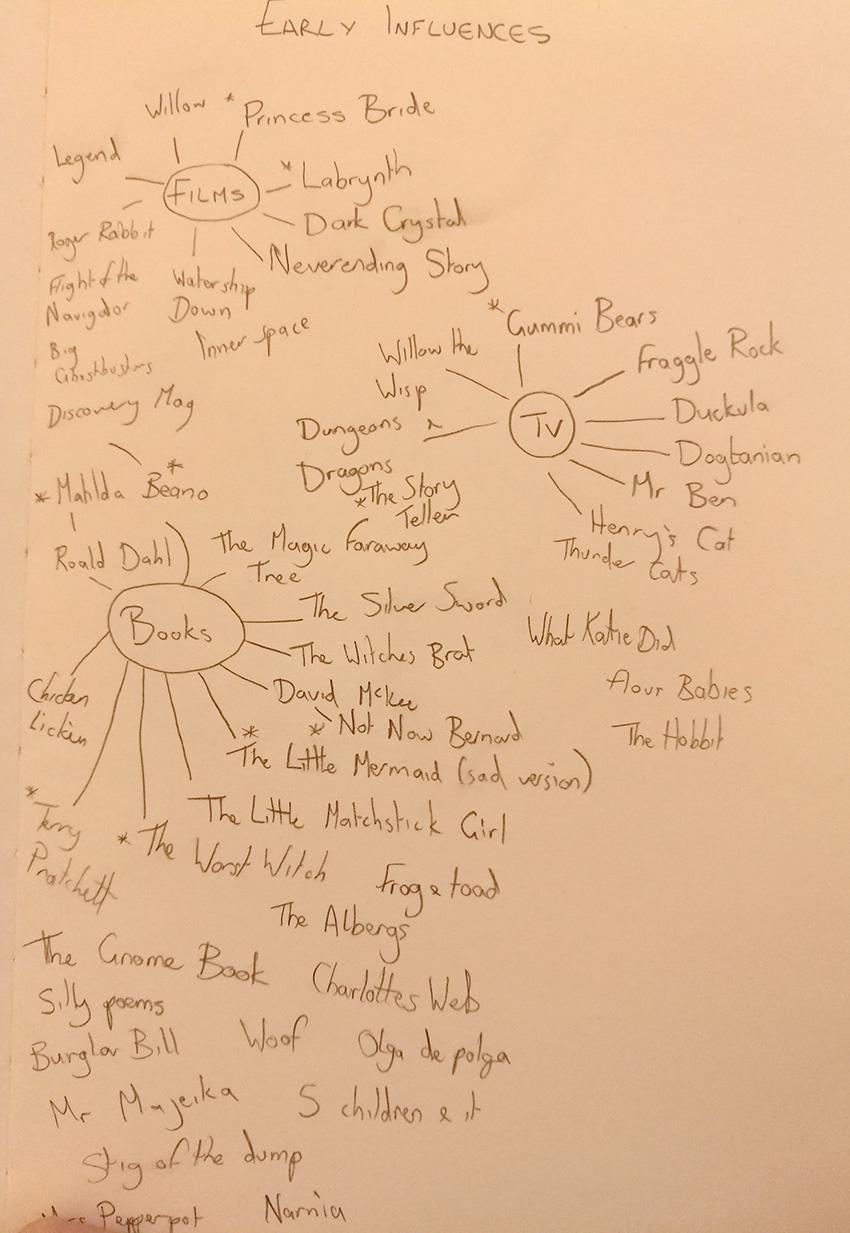 EARLY INFLUENCES
Willow
* Princess Bride
Legend
FILMS
* Labrynth
Dark Crystal
Neverending Story
Roger Rabbit
Flight of the
Navigator
Watership
Down
Inner space
Big
Ghostbusters
Discovery Mag
* Gummi Bears
Fraggle Rock
Willow the
Wisp
TV
Duckula
Dungeons &
Dragons
Dogtanian
Mr Ben
Henry's Cat
Thunder
Cats
* The Story
Teller
* Matilda
* Beano
Roald Dahl)
The Magic Faraway
Tree
Books
The Silver Sword
The Witches Brat
David McKee
* Not Now Bernard
* The Little Mermaid (sad version)
The Little Matchstick Girl
* The Worst Witch
Chicken
Licken
* Terry
Pratchett
What Katie Did
Flour Babies
The Hobbit
Frog & toad
The Albergs
The Gnome Book
Charlottes Web
Silly poems
Burglar Bill
Woof
Olga de polga
Mr Majeika
5 children & it
Stig of the dump
Pepperpot
Narnia